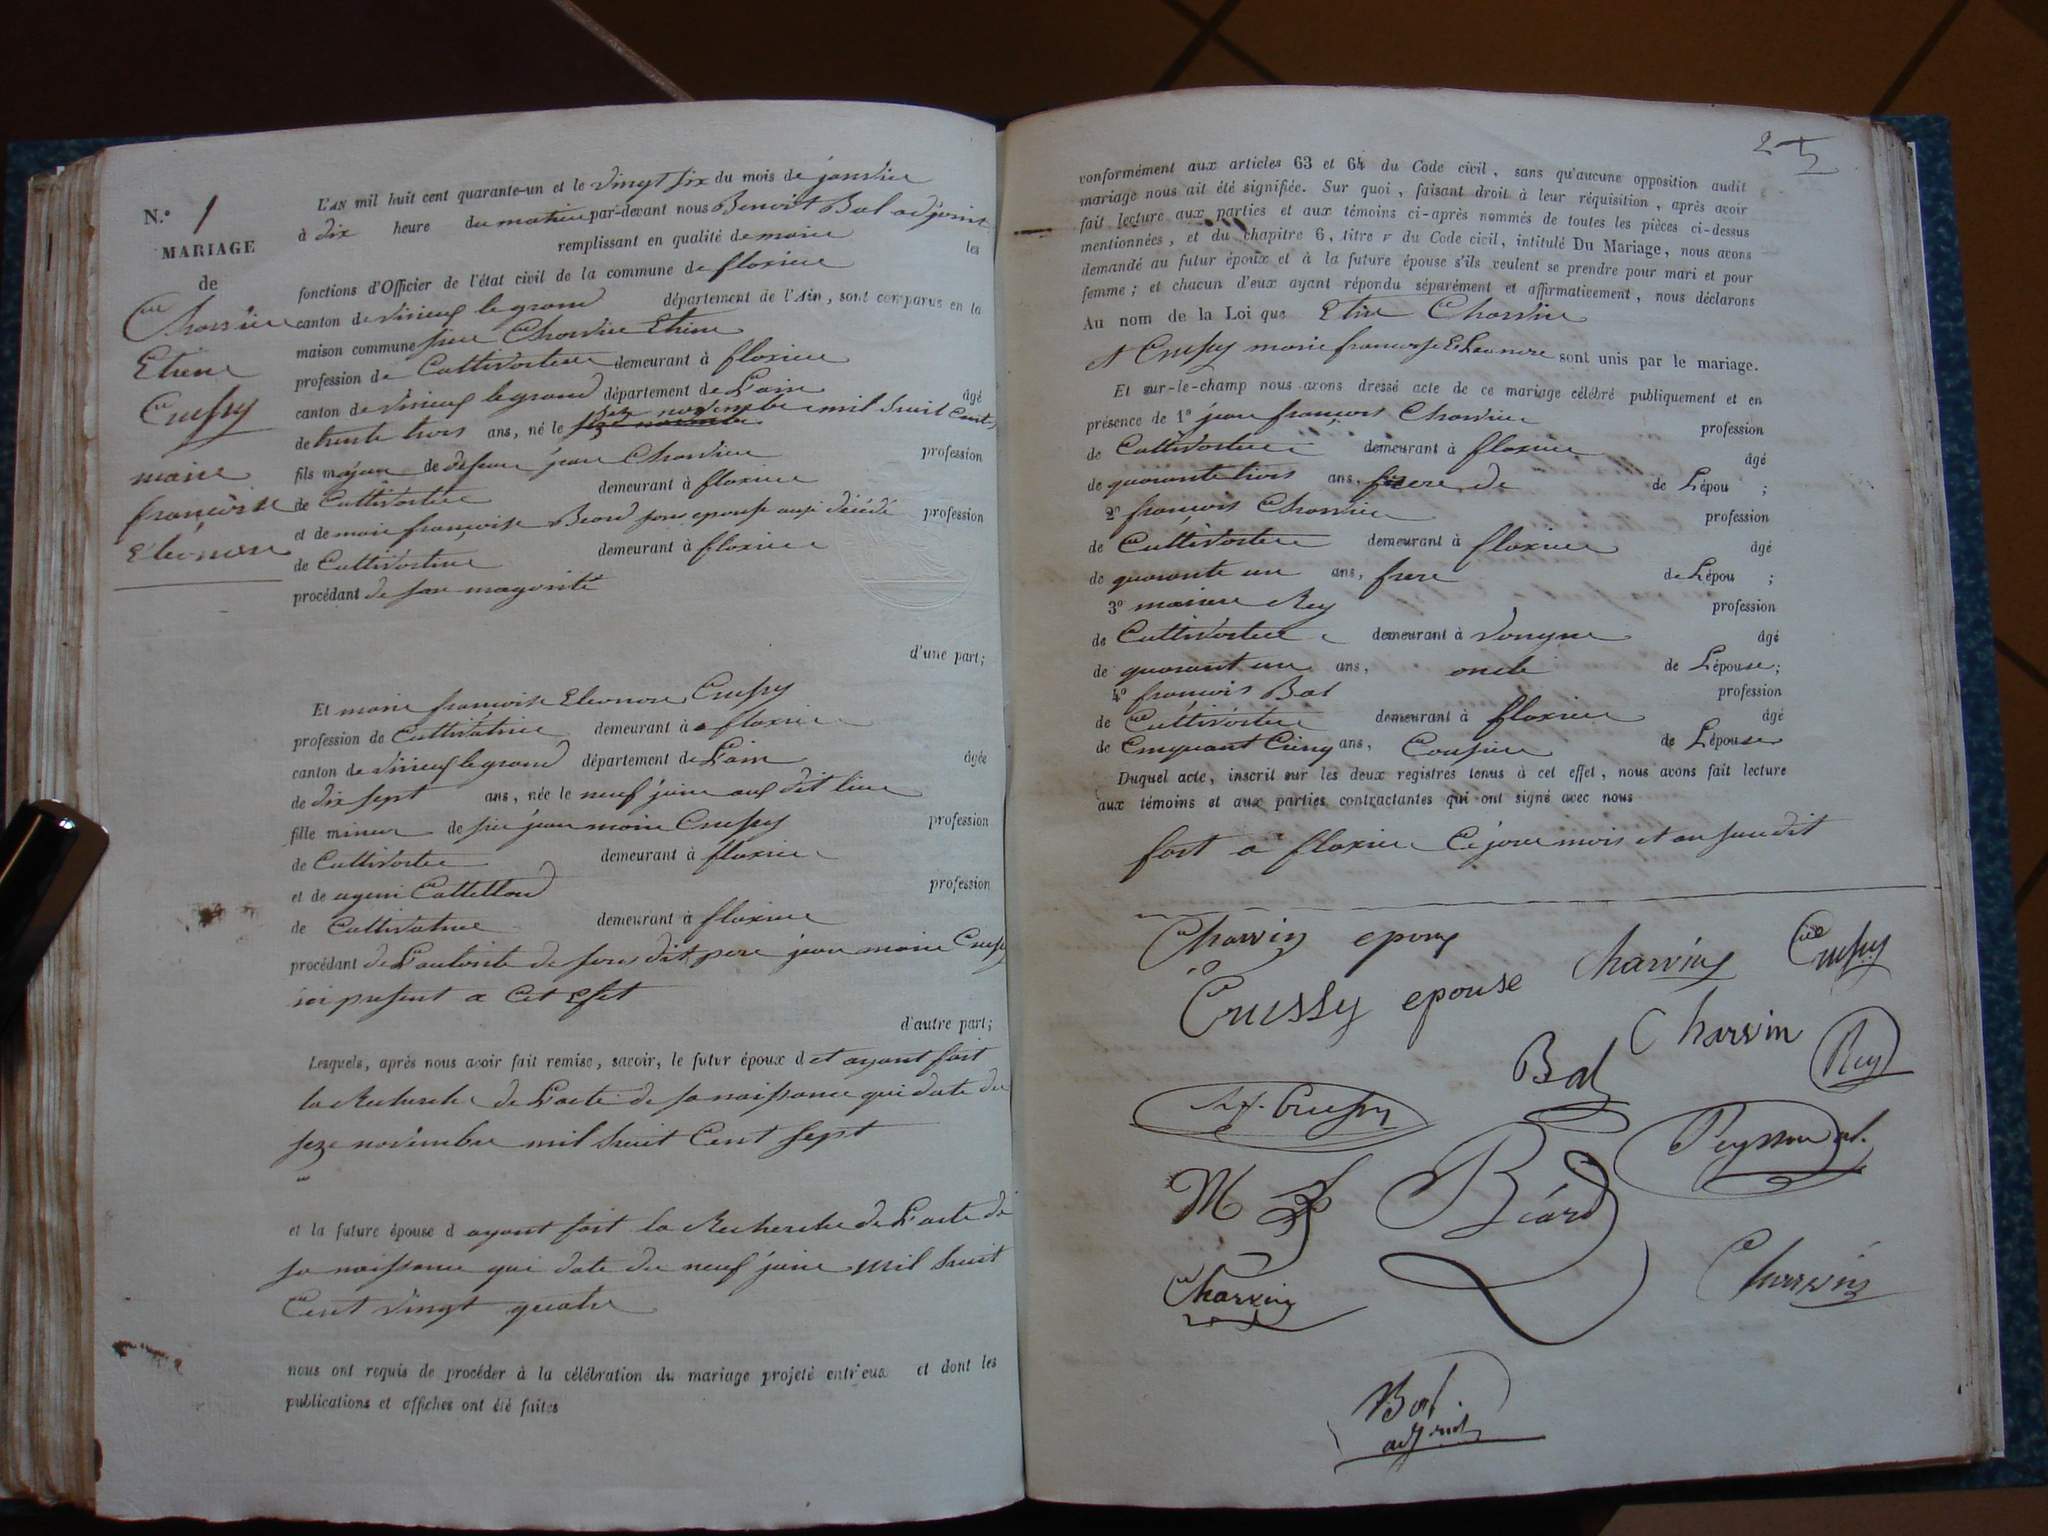 N.° 1
MARIAGE
de
Charvin
Etiene
Crussy
marie
françoise
Eléonore
L'AN mil huit cent quarante-un et le vingt six du mois de janvier
à dix heure du matin par-devant nous Benoit Bal adjoint
remplissant en qualité de maire les
fonctions d'Officier de l'état civil de la commune de flaxieu
canton de virieu le grand département de l'Ain, sont comparus en la
maison commune sieur Charvin Etiene
profession de Cultivateur demeurant à flaxieu
canton de virieu le grand département de L'ain âgé
de trente trois ans, né le seze novembre mil huit Cent
fils majeur de defeu jean Charvin profession
de Cultivateur demeurant à flaxieu
et de marie françoise Beard sons epouse ausi décédé profession
de Cultivatrice demeurant à flaxieu
procédant de san magorité
d'une part;
Et marie françoise Eleonore Crussy
profession de Cultivatrice demeurant à flaxieu
canton de virieu le grand département de L'ain âgée
de dix sept ans, née le neuf juin aux dit lieu
fille mineur de sieur jean marie Crussy profession
de Cultivateur demeurant à flaxieu
et de Cattelland profession
de Cultivatrice demeurant à flaxieu
procédant de L'autorité de sons dit pere jean marie Crussy
ici present a Cet Efet
d'autre part;
Lesquels, après nous avoir fait remise, savoir, le futur époux d et ayant fait
la Recherche de L'acte de sa naissance qui date du
seze novembre mil huit Cent sept
et la future épouse d ayant fait la Recherche de L'acte de
sa naissance qui date du neuf juin mil huit
Cent vingt quatre
nous ont requis de procéder à la célébration du mariage projeté entr'eux et dont les
publications et affiches ont été faites
2
conformément aux articles 63 et 64 du Code civil, sans qu'aucune opposition audit
mariage nous ait été signifiée. Sur quoi, faisant droit à leur réquisition, après avoir
fait lecture aux parties et aux témoins ci-après nommés de toutes les pièces ci-dessus
mentionnées, et du chapitre 6, titre v du Code civil, intitulé Du Mariage, nous avons
demandé au futur époux et à la future épouse s'ils veulent se prendre pour mari et pour
femme; et chacun d'eux ayant répondu séparément et affirmativement, nous déclarons
Au nom de la Loi que Etiene Charvin
et Crussy marie françoise Eleonore sont unis par le mariage.
Et sur-le-champ nous avons dressé acte de ce mariage célébré publiquement et en
présence de 1° jean françois Charvin profession
de Cultivateur demeurant à flaxieu âgé
de quarante trois ans, frere de de L'épou ;
2° françois Charvin profession
de Cultivateur demeurant à flaxieu âgé
de quarante un ans, frere de L'épou ;
3° Rey profession
de Cultivateur demeurant à vongne âgé
de quarant un ans, oncle de L'épouse;
4° françois Bal profession
de Cultivateur demeurant à flaxieu âgé
de Cinquant Cinq ans, Cousin de L'épouse
Duquel acte, inscrit sur les deux registres tenus à cet effet, nous avons fait lecture
aux témoins et aux parties contractantes qui ont signé avec nous
fait a flaxieu Ce jour mois et an susdit
Charvin epoux
Crussy epouse Charvin Crussy
Bal Charvin Rey
Crussy Peysson
M Béard
Charvin Charvin
Bal
adjoint